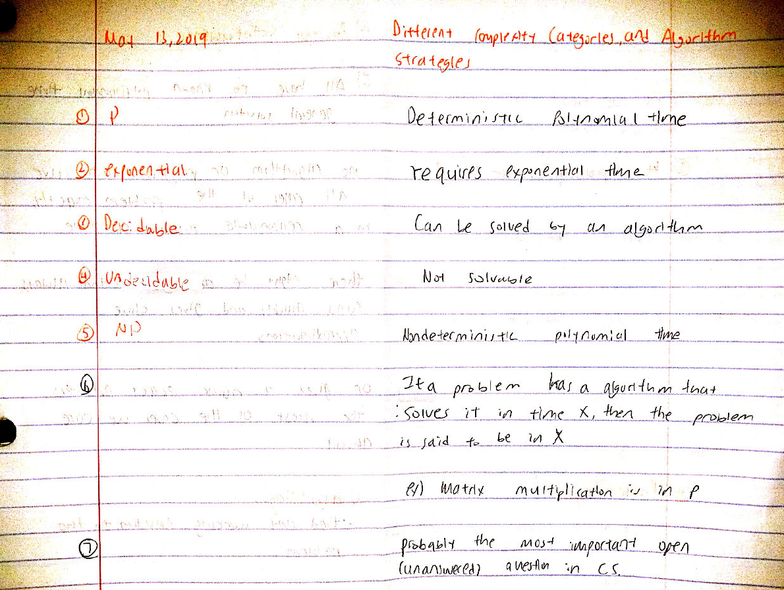 Mar 13, 2019 Different Complexity Categories, and Algorithm
Strategies
① P Deterministic Polynomial time
② exponential requires exponential time
③ Decidable Can be solved by an algorithm
④ Undecidable Not solvable
⑤ NP Nondeterministic polynomial time
⑥ If a problem has a algorithm that
solves it in time X, then the problem
is said to be in X
ex) Matrix multiplication is in P
⑦ probably the most important open
(unanswered) question in CS.